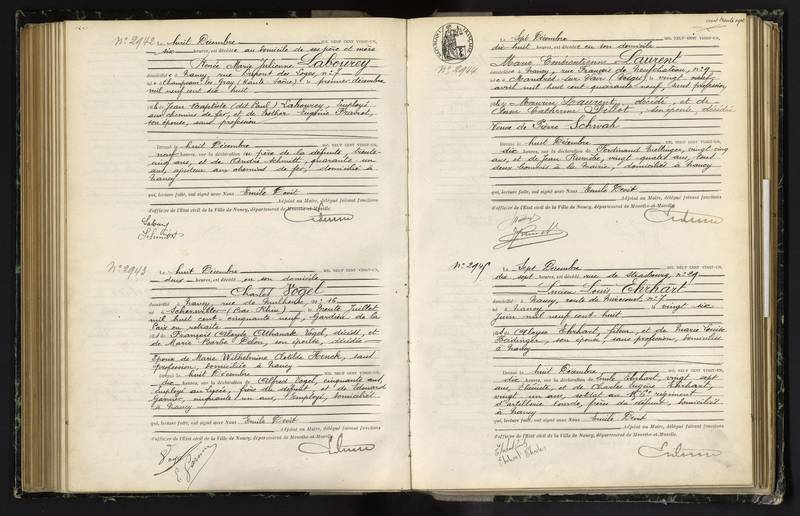 N° 2942 Le huit Décembre MIL NEUF CENT VINGT-UN,
six heures, est décédée au domicile de ses père et mère
Renée Marie Julienne Labourey
domiciliée à Nancy, rue Dupont des Loges, n° 7
née à Champvans les Gray (Haute Saône) le premier décembre
mil neuf cent huit
fille de Jean Baptiste (dit Paul) Labourey, employé
aux chemins de fer, et de Eugénie
son épouse, sans profession
Devant le huit Décembre MIL NEUF CENT VINGT-UN,
neuf heures, sur la déclaration de père de la défunte, trente
cinq ans, et de André Schmitt, quarante un
ans, ajusteur aux chemins de fer, domiciliés à
Nancy
qui, lecture faite, ont signé avec Nous Emile
Adjoint au Maire, délégué faisant fonctions
d'officier de l'Etat civil de la Ville de Nancy, département de Meurthe-et-Moselle.
N° 2943 Le huit Décembre MIL NEUF CENT VINGT-UN,
deux heures, est décédé en son domicile
Charles Vogel
domicilié à Nancy, rue de Mulhouse, n° 16
né à Scherwiller (Bas-Rhin) le trente Juillet
mil huit cent cinquante neuf, Gardien de la
Paix en retraite
fils de François Aloyse Athanase Vogel, décédé, et
de Marie Barbe son épouse, décédée
Epoux de Marie Wilhelmine Clotilde Henck, sans
profession, domiciliée à Nancy
Devant le huit Décembre MIL NEUF CENT VINGT-UN,
dix heures, sur la déclaration de Alfred Vogel, cinquante ans,
employé au Lycée, frère du défunt, et de Edouard
Garnier, cinquante un ans, employé, domiciliés
à Nancy
qui, lecture faite, ont signé avec Nous Emile
Adjoint au Maire, délégué faisant fonctions
d'officier de l'Etat civil de la Ville de Nancy, département de Meurthe-et-Moselle.
N° 2944 Le sept Décembre MIL NEUF CENT VINGT-UN,
dix huit heures, est décédée en son domicile
Marie Laurent
domiciliée à Nancy, rue François de Neufchâteau, n° 9
née à (Vosges) le vingt neuf
avril mil huit cent quarante neuf, sans profession
fille de Maurice Laurent, décédé, et de
Anne Catherine son épouse, décédée
Veuve de Pierre Schwab
Devant le huit Décembre MIL NEUF CENT VINGT-UN,
dix heures, sur la déclaration de Ferdinand vingt cinq
ans, et de Jean vingt quatre ans, tous
deux commis à la Mairie, domiciliés à Nancy
qui, lecture faite, ont signé avec Nous Emile
Adjoint au Maire, délégué faisant fonctions
d'officier de l'Etat civil de la Ville de Nancy, département de Meurthe-et-Moselle.
N° 2945 Le Sept Décembre MIL NEUF CENT VINGT-UN,
dix sept heures, est décédé rue de Strasbourg, n° 29
Lucien Louis Ehrhart
domicilié à Nancy, route de Mirecourt n° 7
né à Nancy le vingt six
Juin mil neuf cent huit
fils de Aloyse Ehrhart, fileur, et de Marie Louise
Heidinger, son épouse, sans profession, domiciliés
à Nancy
Devant le huit Décembre MIL NEUF CENT VINGT-UN,
dix heures, sur la déclaration de Emile Ehrhart, vingt sept
ans, et de Charles Eugène Ehrhart,
vingt un ans, soldat au régiment
d'artillerie lourde, frères du défunt, domiciliés
à Nancy
qui, lecture faite, ont signé avec Nous Emile
Adjoint au Maire, délégué faisant fonctions
d'officier de l'Etat civil de la Ville de Nancy, département de Meurthe-et-Moselle.